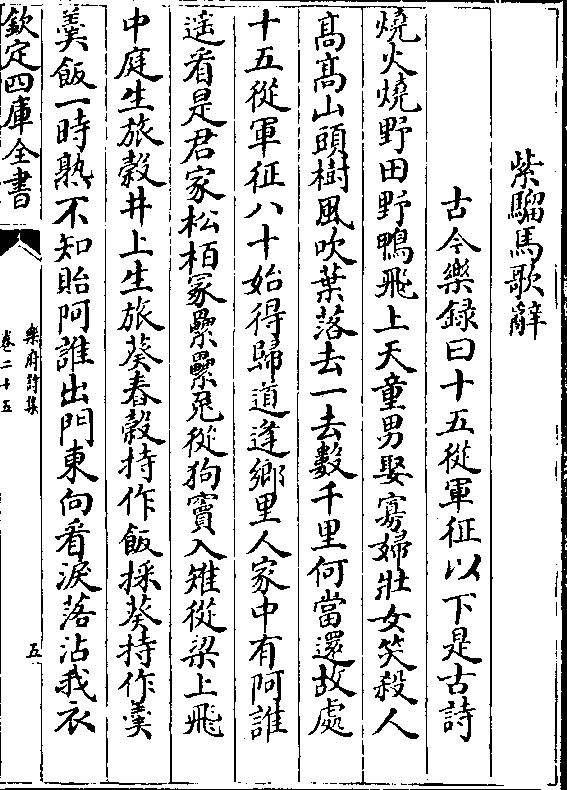 紫騮馬歌辭
古今樂録曰十五從軍征以下是古詩
燒火燒野田野鴨飛上天童男娶寡婦壯女笑殺人
高高山頭樹風吹葉落去一去數千里何當還故處
十五從軍征八十始得歸道逢鄉里人家中有阿誰
遥看是君家松栢冢纍纍兎從狗竇入雉從梁上飛
中庭生旅榖井上生旅葵舂榖持作飯採葵持作羮
羮飯一時熟不知貽阿誰出門東向看淚落沾我衣
欽定四庫全書
樂府詩集
卷二十五
五